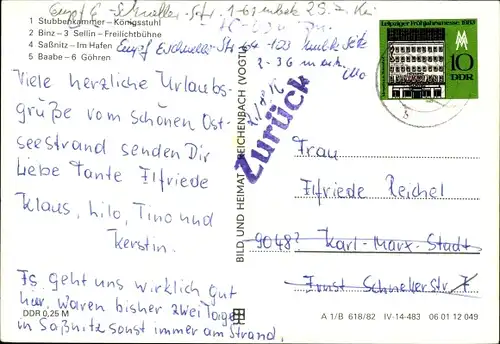 1 Stubbenkammer – Königsstuhl
2 Binz – 3 Sellin – Freilichtbühne
4 Saßnitz – Im Hafen
5 Baabe – 6 Göhren
Viele herzliche Urlaubs-
grüße vom schönen Ost-
seestrand senden Dir
liebe Tante Elfriede
Klaus, Lilo, Tino und
Kerstin.
Es geht uns wirklich gut
hier. Waren bisher zwei Tage
in Saßnitz sonst immer am Strand.
DDR 0,25 M
BILD UND HEIMAT REICHENBACH (VOGTL)
Zurück
Leipziger Frühjahrsmesse 1983
MM
10
DDR
Frau
Elfriede Reichel
9048? Karl-Marx-Stadt
Ernst Schnellerstr. 7
A 1/B 618/82 IV-14-483 06 01 12 049